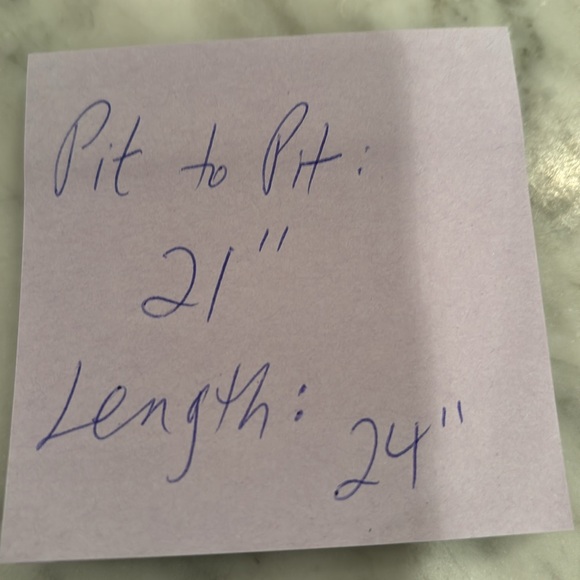 Pit to Pit:
21"
Length:
24"